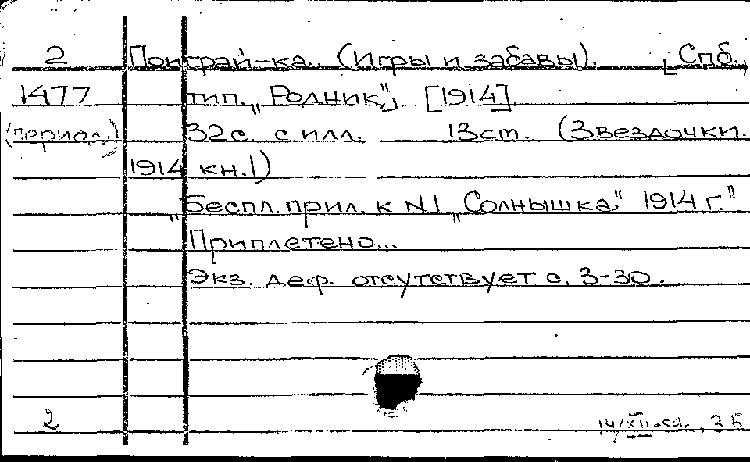 2 Поиграй-ка. (Игры и забавы). [Спб.,
1477 тип. „Родник", [1914].
(период.) 32с. с илл. 13см. (Звездочки.
1914 кн.1)
„Беспл. прил. к №1 „Солнышка" 1914 г."
Приплетено...
Экз. деф. отсутствует с. 3-30.
2